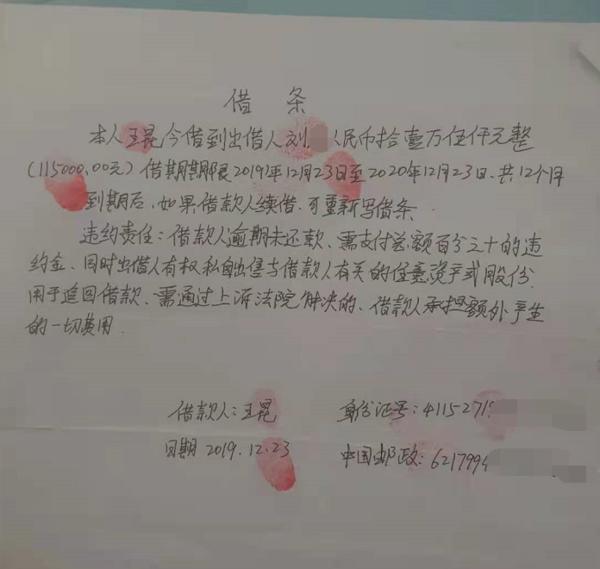 借 条
本人王昆今借到出借人刘 人民币拾壹万伍仟元整
(115000.00元)借期期限2019年12月23日至2020年12月23日.共12个月
到期后,如果借款人续借.可重新写借条.
违约责任:借款人逾期未还款、需支付总额百分之十的违
约金、同时出借人有权私自与借款人有关的任意资产或股份.
用于追回借款、需通过上诉法院解决的、借款人承担额外产生
的一切费用.
借款人:王昆 身份证号:4115271
日期 2019.12.23 中国邮政:621799